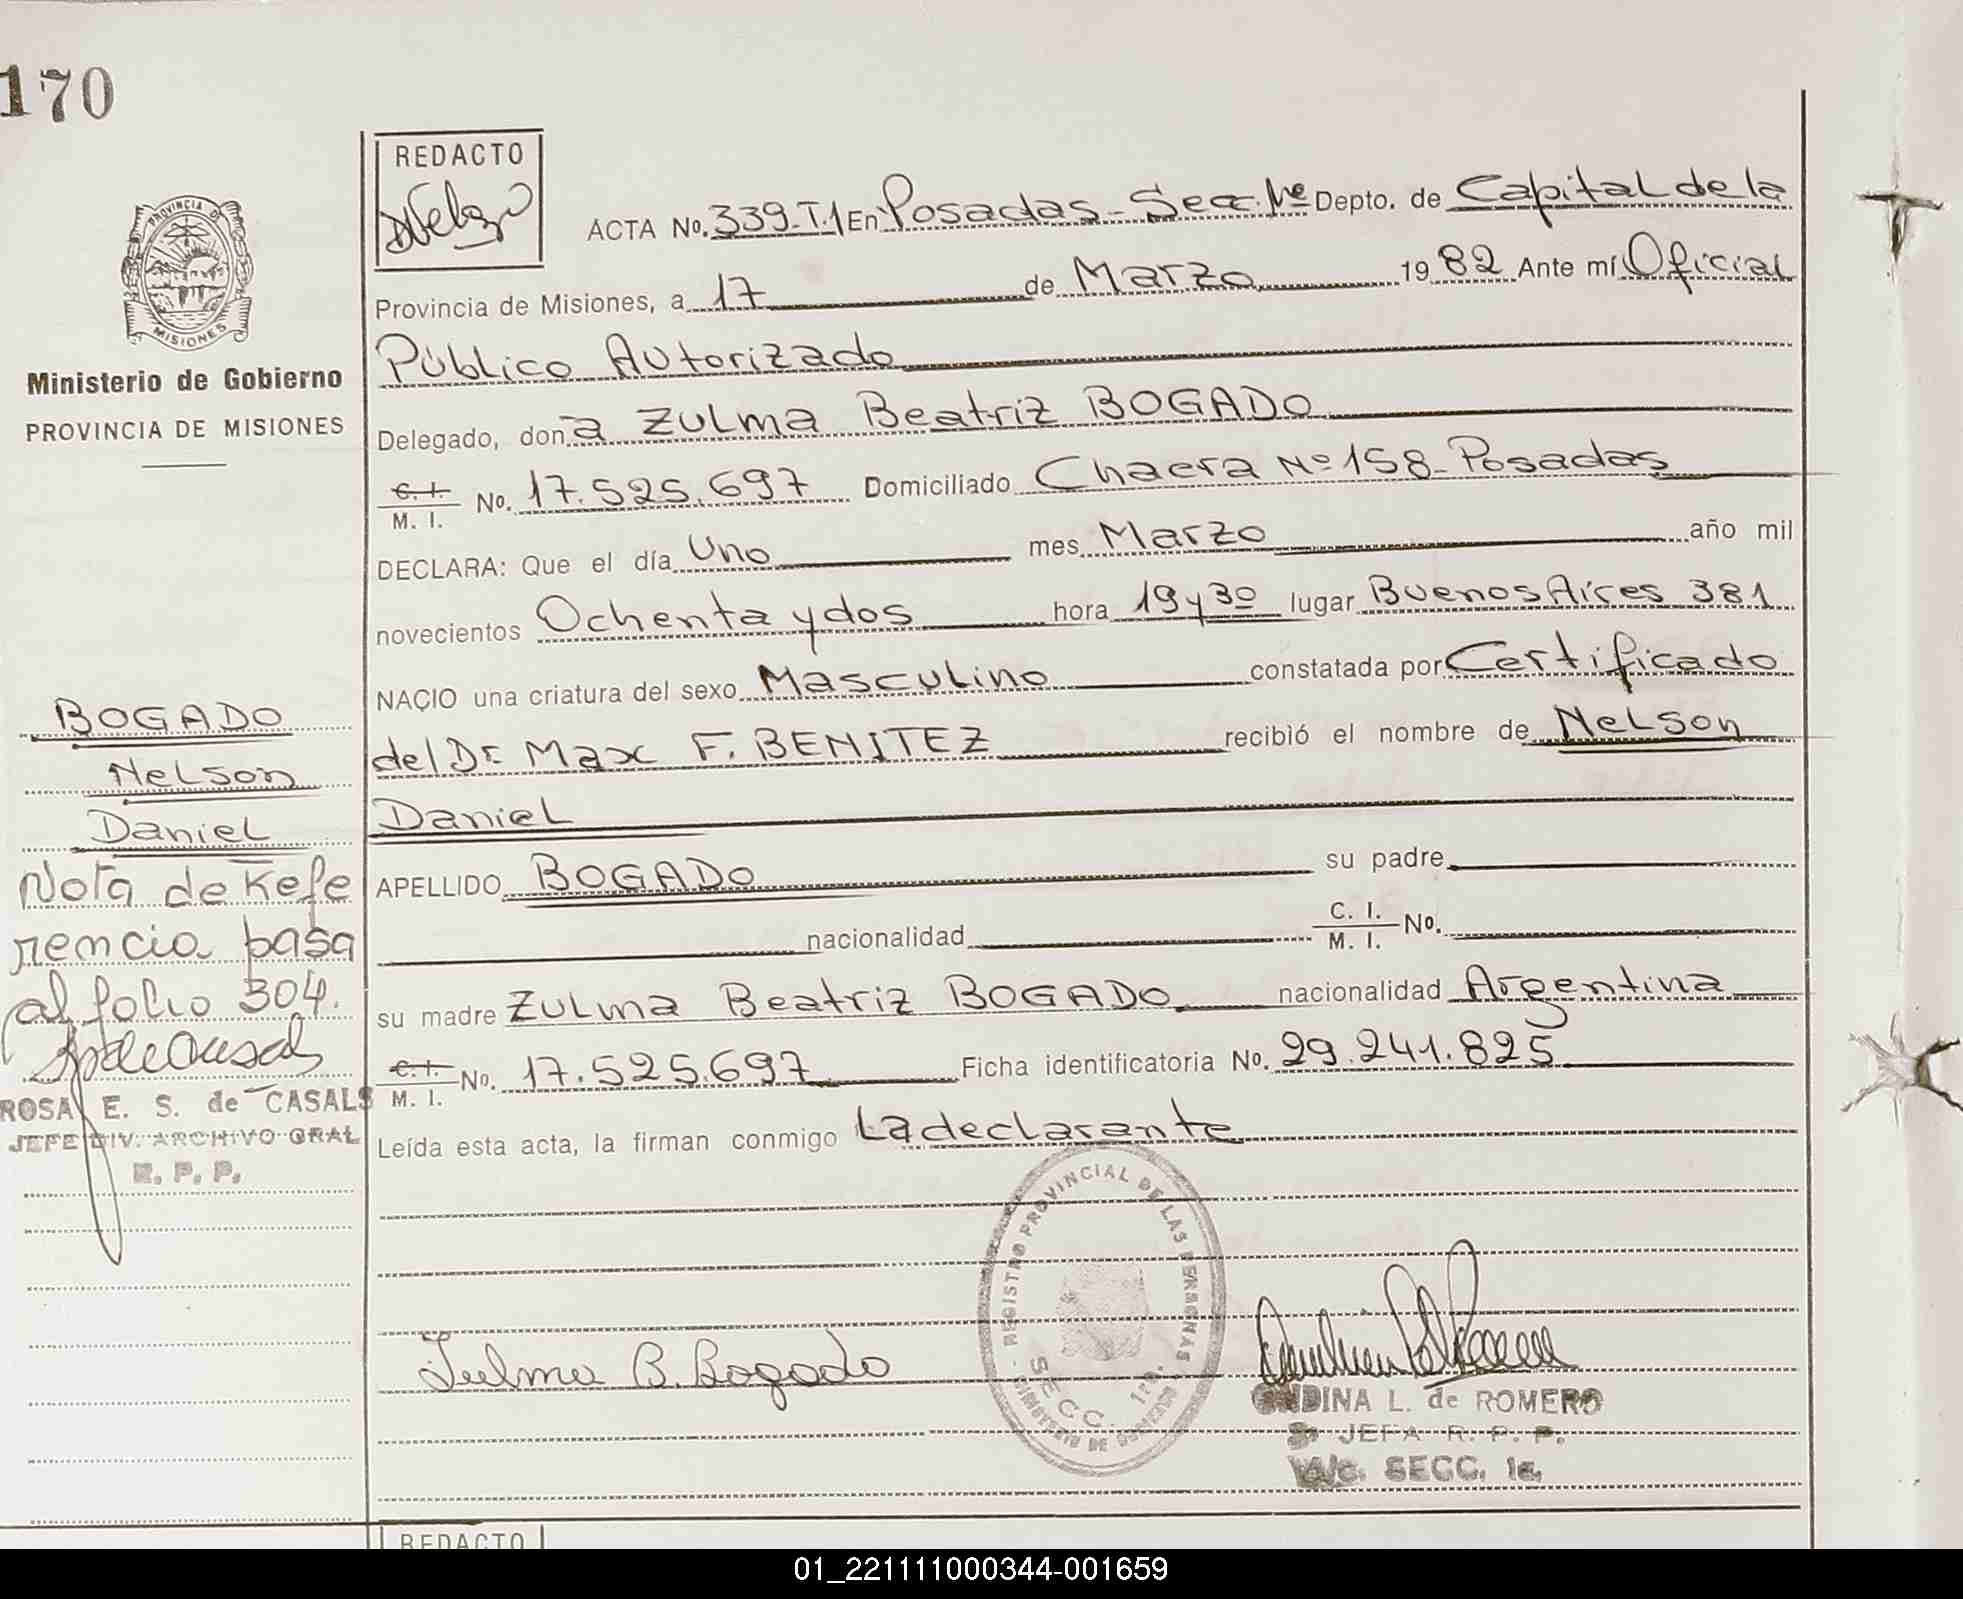 170
REDACTO
ACTA No. 339-T.1 En Posadas-Secc. 1ra Depto. de Capital de la
PROVINCIA DE
MISIONES
Provincia de Misiones, a 17 de Marzo 1982 Ante mí Oficial
Público Autorizado
Ministerio de Gobierno
PROVINCIA DE MISIONES
Delegado, don ña Zulma Beatriz BOGADO
C. I.
M. I. No. 17.525.697 Domiciliado Chacra Nº 158-Posadas
DECLARA: Que el día Uno mes Marzo año mil
novecientos Ochenta y dos hora 19 y 30 lugar Buenos Aires 381
NACIO una criatura del sexo Masculino constatada por Certificado
del Dr. Max F. BENITEZ recibió el nombre de Nelson
Daniel
APELLIDO BOGADO su padre
nacionalidad C. I.
M. I. No.
su madre Zulma Beatriz BOGADO nacionalidad Argentina
C. I.
M. I. No. 17.525.697 Ficha identificatoria No. 29.241.825
Leída esta acta, la firman conmigo La declarante
BOGADO
Nelson
Daniel
Nota de Refe
rencia pasa
al folio 304.
ROSA E. S. de CASALS
JEFE DIV. ARCHIVO GRAL
R. P. P.
REGISTRO PROVINCIAL DE LAS PERSONAS
SECC. 1ra.
MINISTERIO DE GOBIERNO
Zulma B. Bogado
ONDINA L. de ROMERO
JEFA R. P. P.
SECC. 1a.
REDACTO
01_221111000344-001659